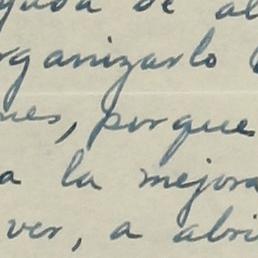 yuda de al
rganizarlo
nes, porque
a la mejora
ver, a abri